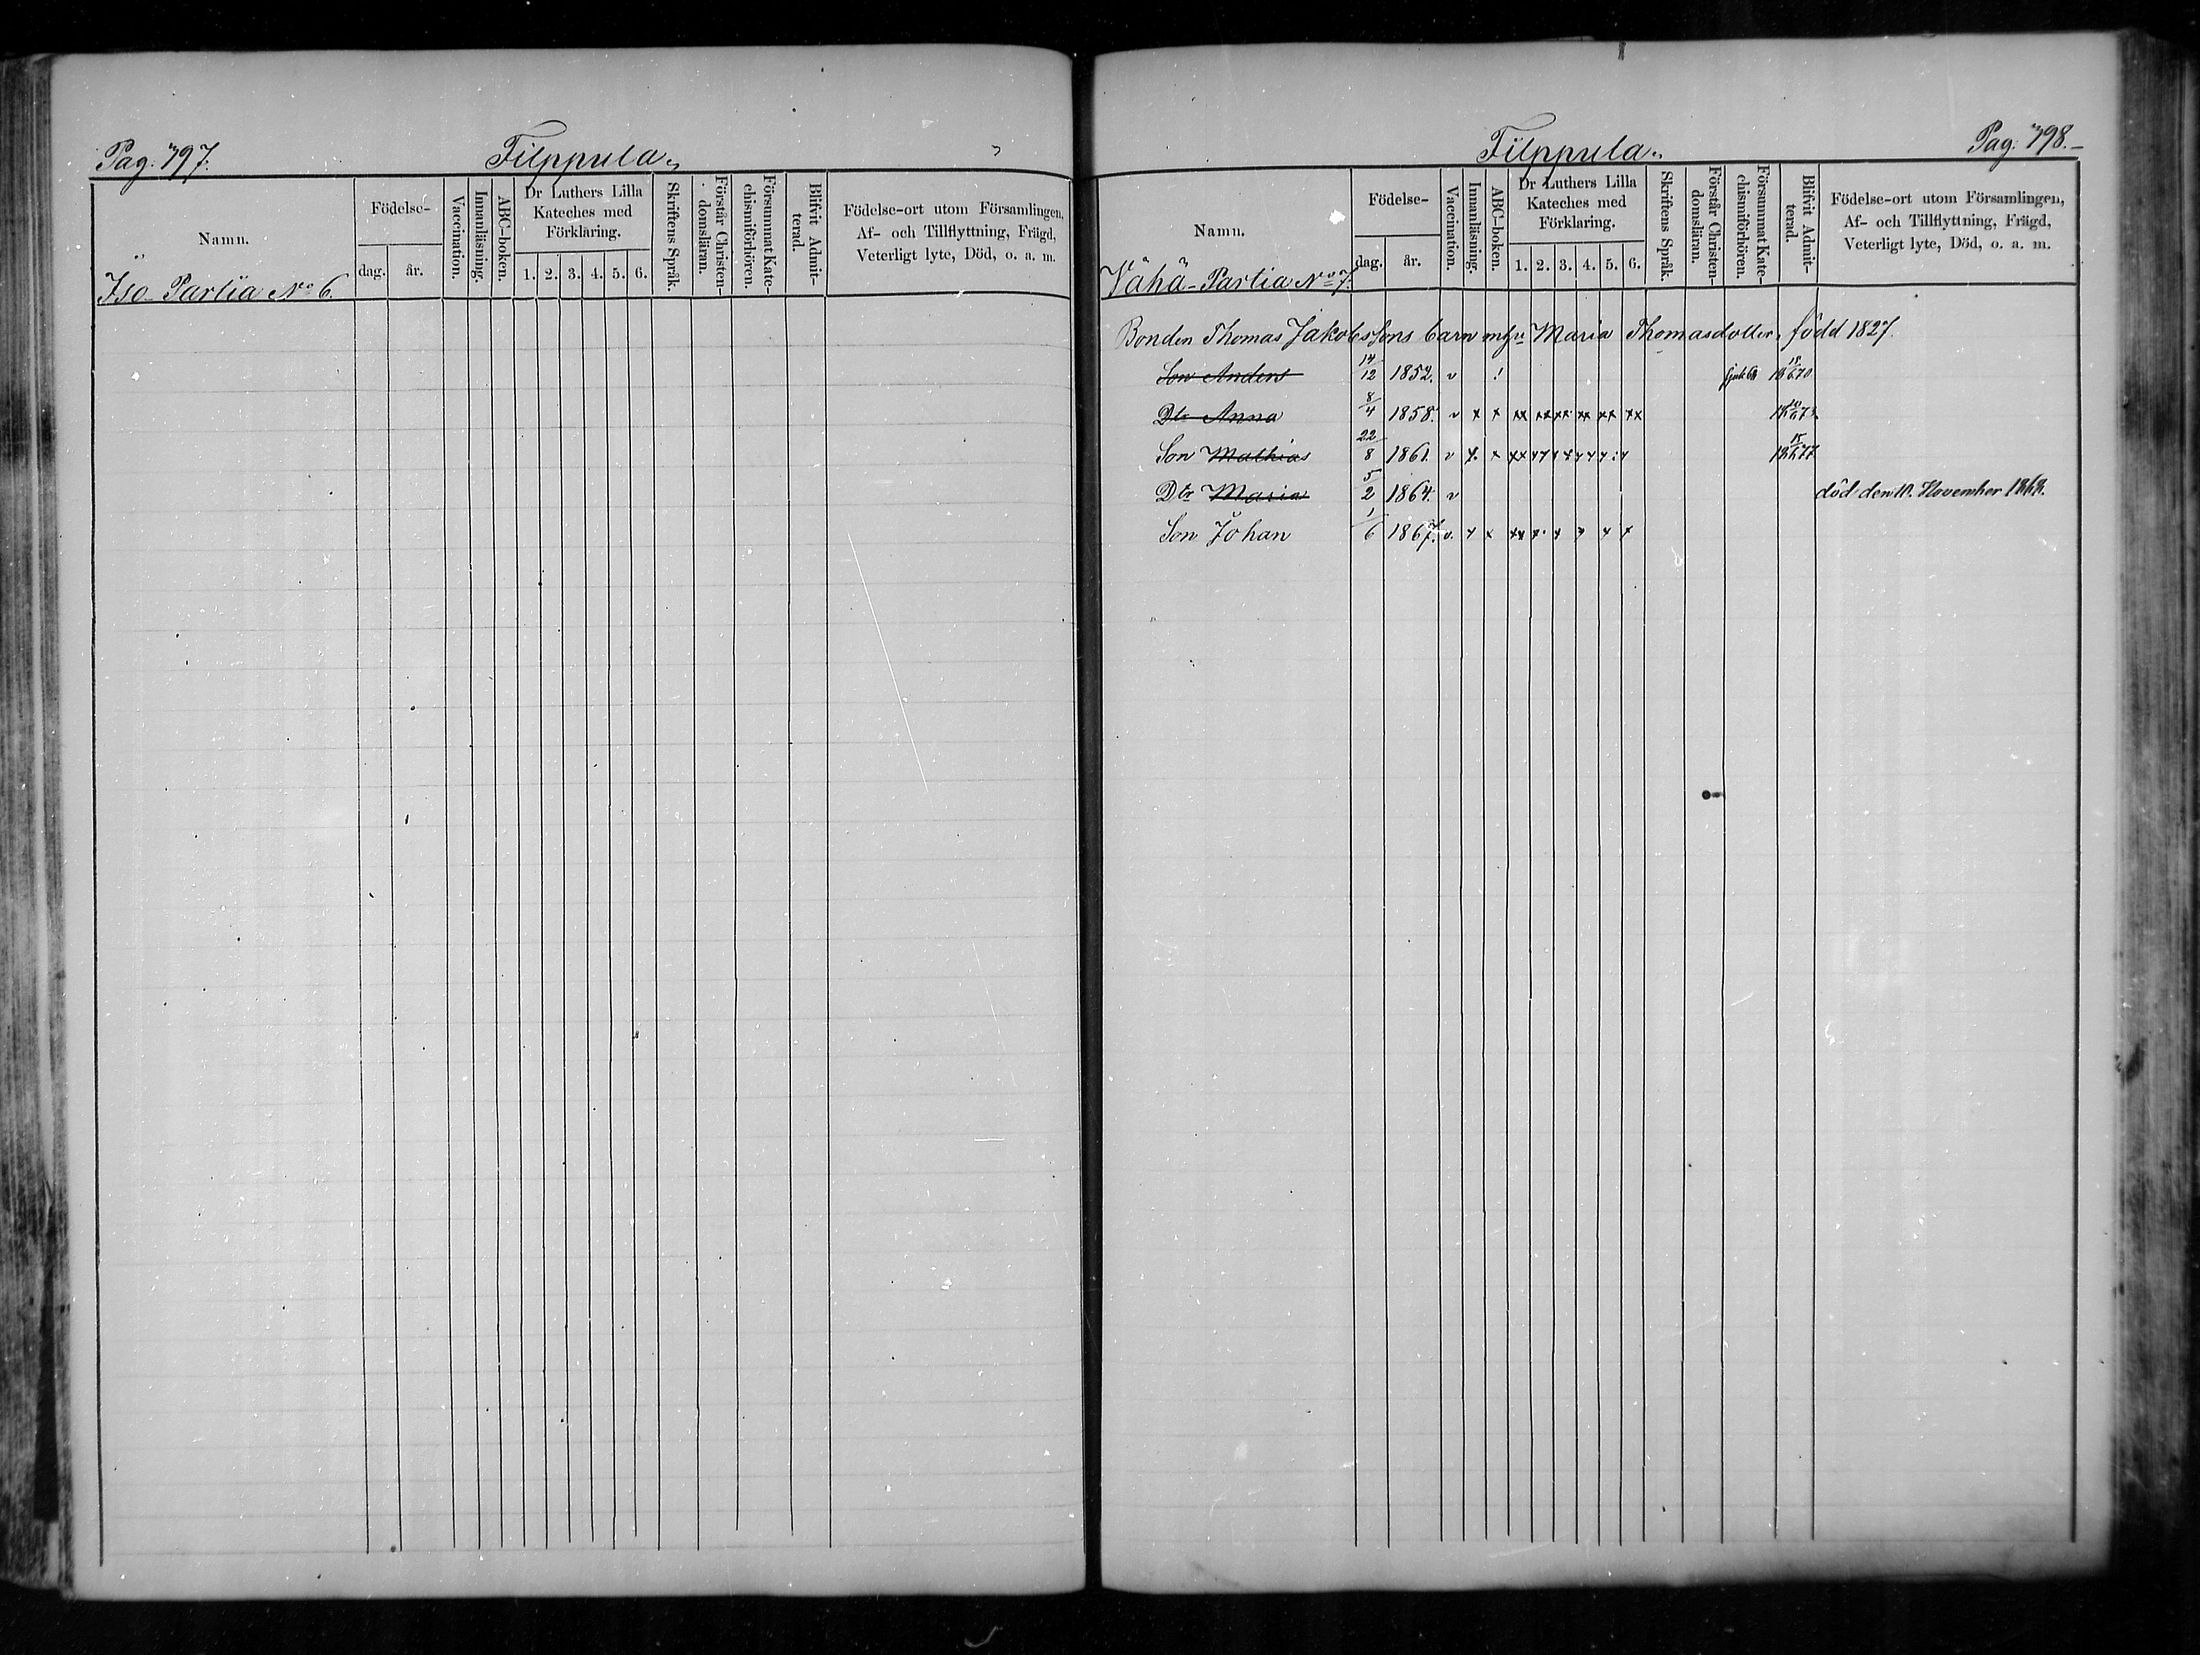 Pag. 797.
Filppula.
Namn.
Födelse-
dag.
år.
Vaccination.
Innanläsning.
ABC-boken.
Dr Luthers Lilla
Kateches med
Förklaring.
1. 2. 3. 4. 5. 6.
Skriftens Språk.
Förstår Christen-
domsläran.
Försummat Kate-
chismiförhören.
Blifvit Admit-
terad.
Födelse-ort utom Församlingen,
Af- och Tillflyttning, Frägd,
Veterligt lyte, Död, o. a. m.
Iso-Partia No 6.
Filppula.
Pag. 798.
Namn.
Födelse-
dag.
år.
Vaccination.
Innanläsning.
ABC-boken.
Dr Luthers Lilla
Kateches med
Förklaring.
1. 2. 3. 4. 5. 6.
Skriftens Språk.
Förstår Christen-
domsläran.
Försummat Kate-
chismiförhören.
Blifvit Admit-
terad.
Födelse-ort utom Församlingen,
Af- och Tillflyttning, Frägd,
Veterligt lyte, Död, o. a. m.
Vähä-Partia No 7.
Bonden Thomas Jakobssons barn Maria Thomasdotter, född 1827.
Son Anders 14/12 1852. v !
Dtr Anna 8/4 1858. v x x xx xx xx xx xx xx
Son Mathias 22/8 1861. v x x xx
Dtr Maria 5/2 1864. v död den November
Son Johan 1/6 1867. v. x x xx x x x x x